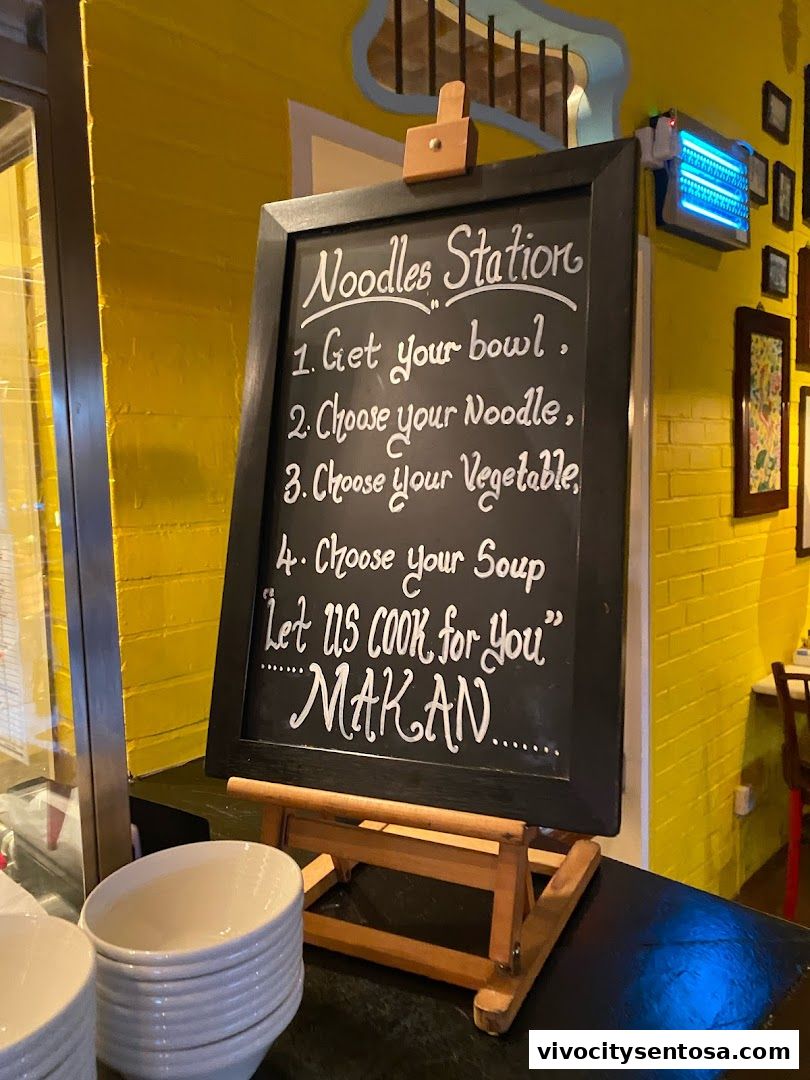 Noodles Station
1. Get your bowl,
2. Choose your Noodle,
3. Choose your Vegetable,
4. Choose your Soup
"Let US COOK for You"
....... MAKAN .......
vivocitysentosa.com